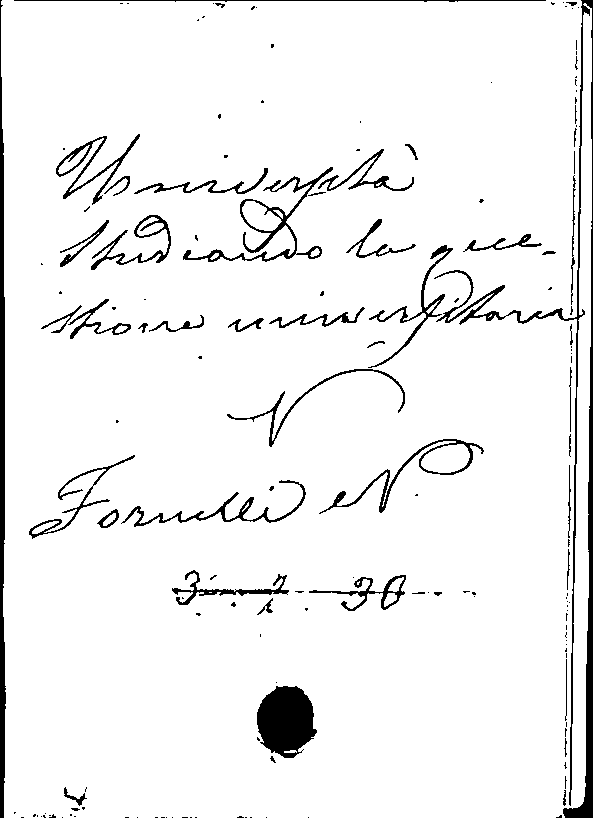 Università
Studiando la que-
stione universitaria
V
Fornelli N.
3 2 36